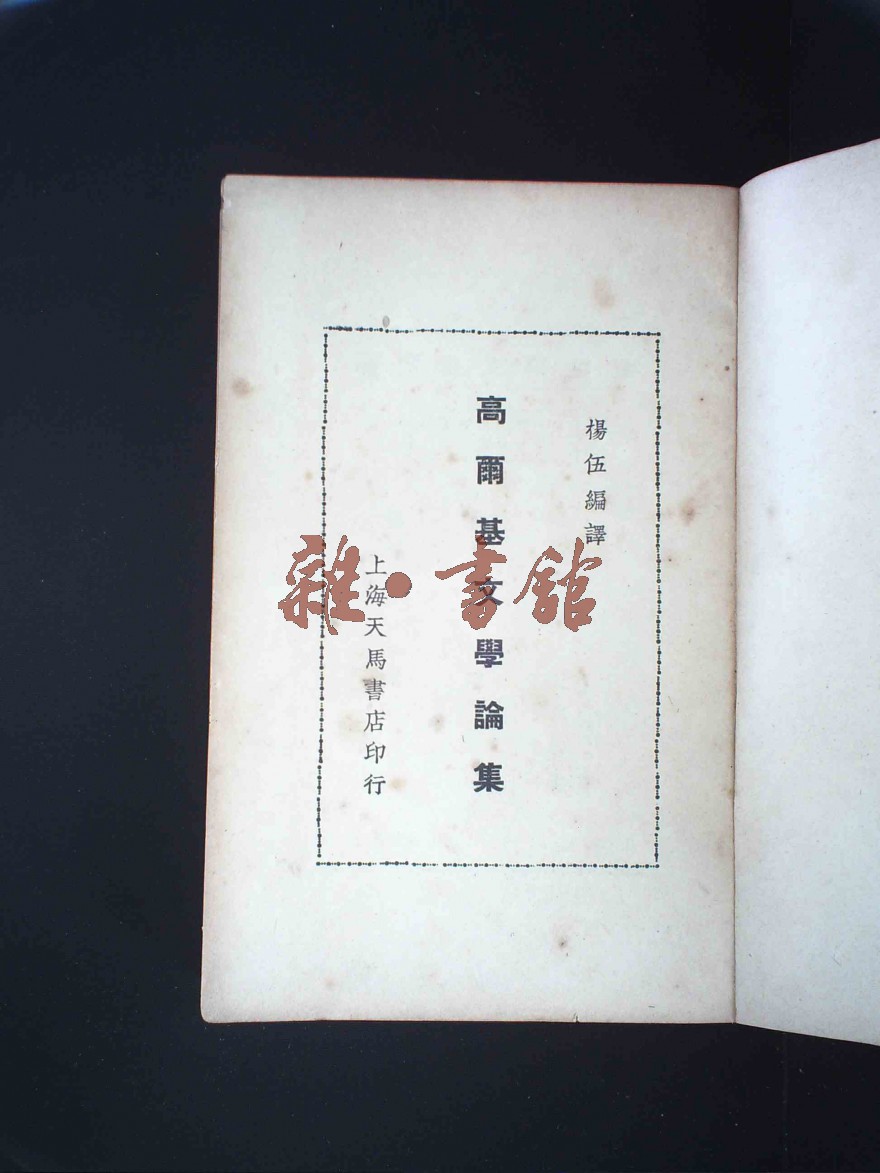 楊伍編譯
高爾基文學論集
上海天馬書店印行
雜·書館